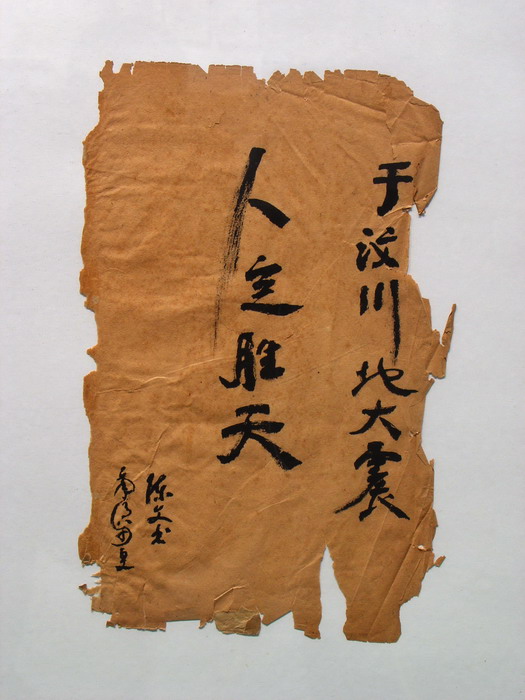 于汶川地大震
人定胜天
陈文书